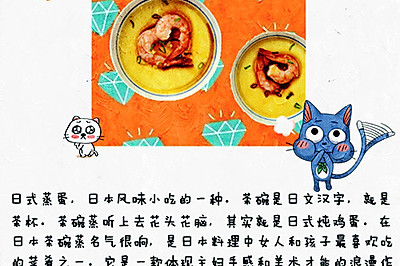 日式蒸蛋，日本风味小吃的一种，茶碗是日文汉字，就是
茶杯，茶碗蒸听上去花头花脑，其实就是日式炖鸡蛋，在
日本茶碗蒸名气很响，是日本料理中女人和孩子最喜欢吃
的菜肴之一，它是一款体现主妇手感和美术才能的浪漫作